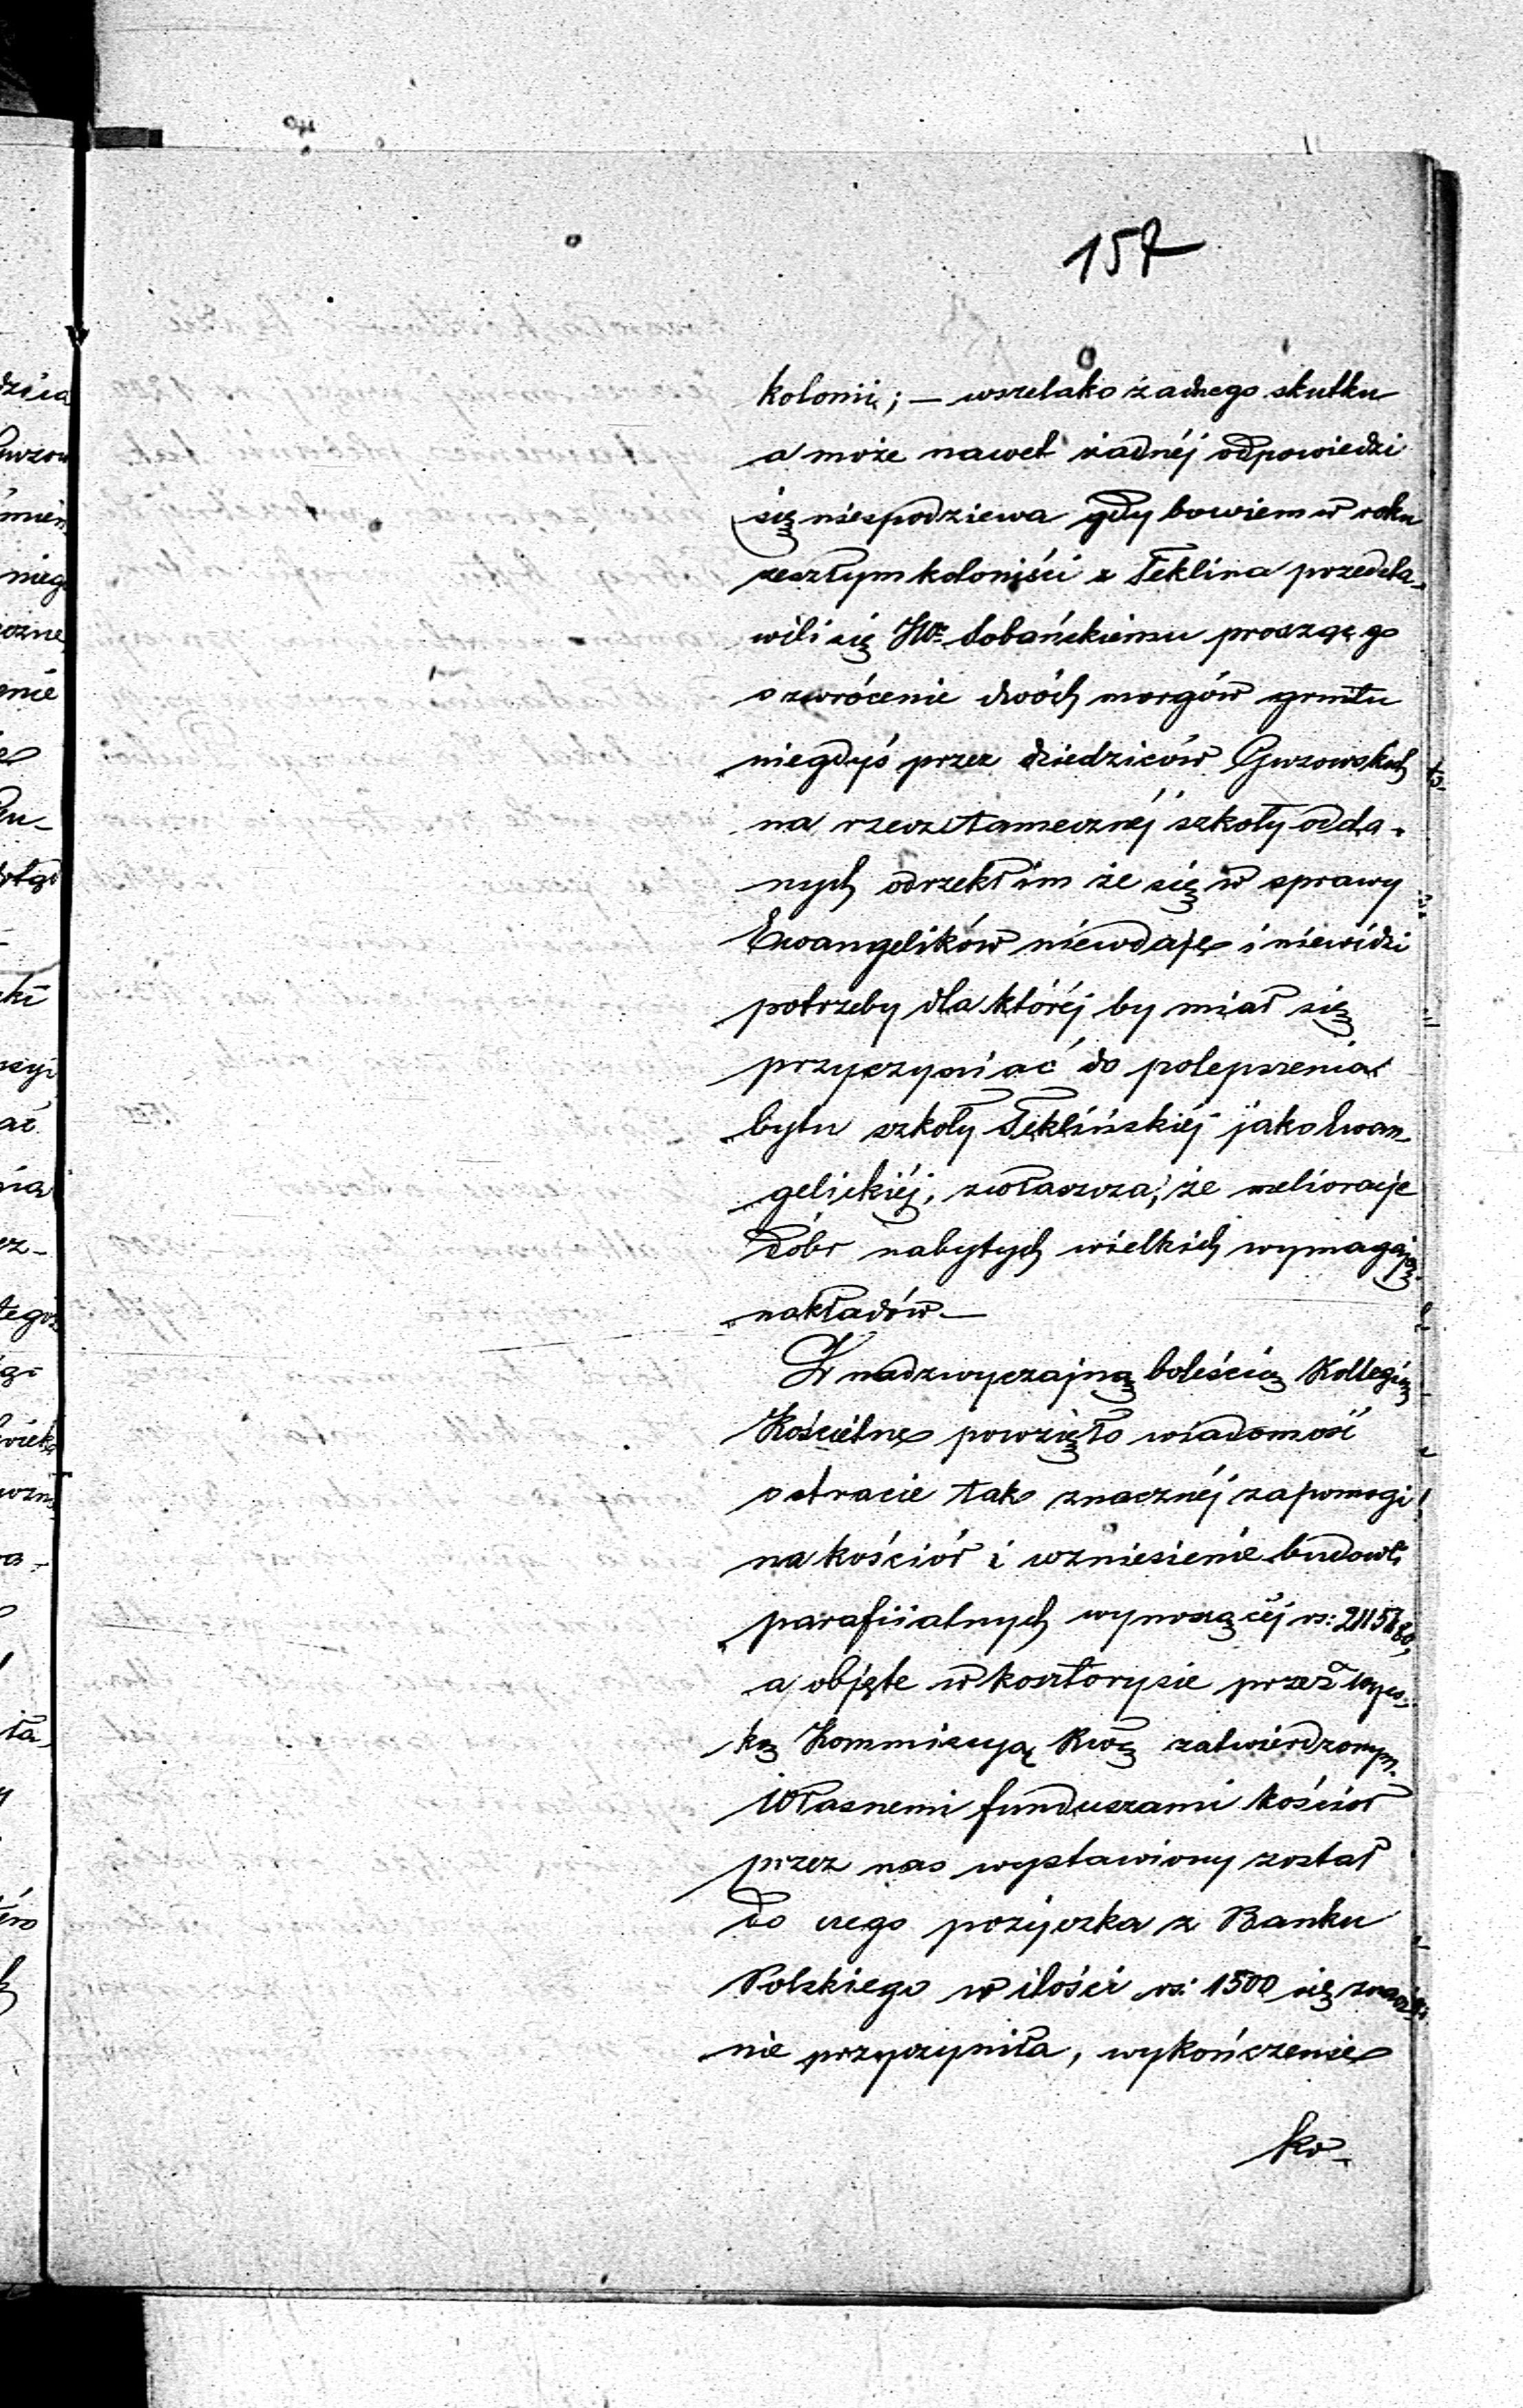 157
kolonii; — wszelako żadnego skutku
a może nawet żadnéj odpowiedzi
się niespodziewa gdy bowiem w roku
zeszłym koloniści z Teklina przedsta-
wili się Sobańskiemu prosząc go
o zwrócenie dwóch morgów gruntu
niegdyś przez dziedziców Guzowskich
na rzecz tamecznéj szkoły odda-
nych odrzekł im że się w sprawy
Ewangelików niewdaje i niewidzi
potrzeby dla któréj by miał się
przyczyniać do polepszenia
bytu szkoły Teklińskiéj jako Ewan-
gelickiéj, zwłaszcza, że melioracje
dóbr nabytych wielkich wymagają
nakładów —
Z nadzwyczajną boleścią Kollegium
Kościelne powzięło wiadomość
o stracie tak znacznéj zapomogi
na kościół i wzniesienie budowli
parafiialnych wynoszącéj rs:
a objęte w kosztorysie przez Wyso-
ką Kommissyą Rwą zatwierdzonym.
Własnemi funduszami kościół
przez nas wystawiony został
do czego pożyczka z Banku
Polskiego w ilości rs: 1500 się znacz
nie przyczyniła, wykończenie
ko-